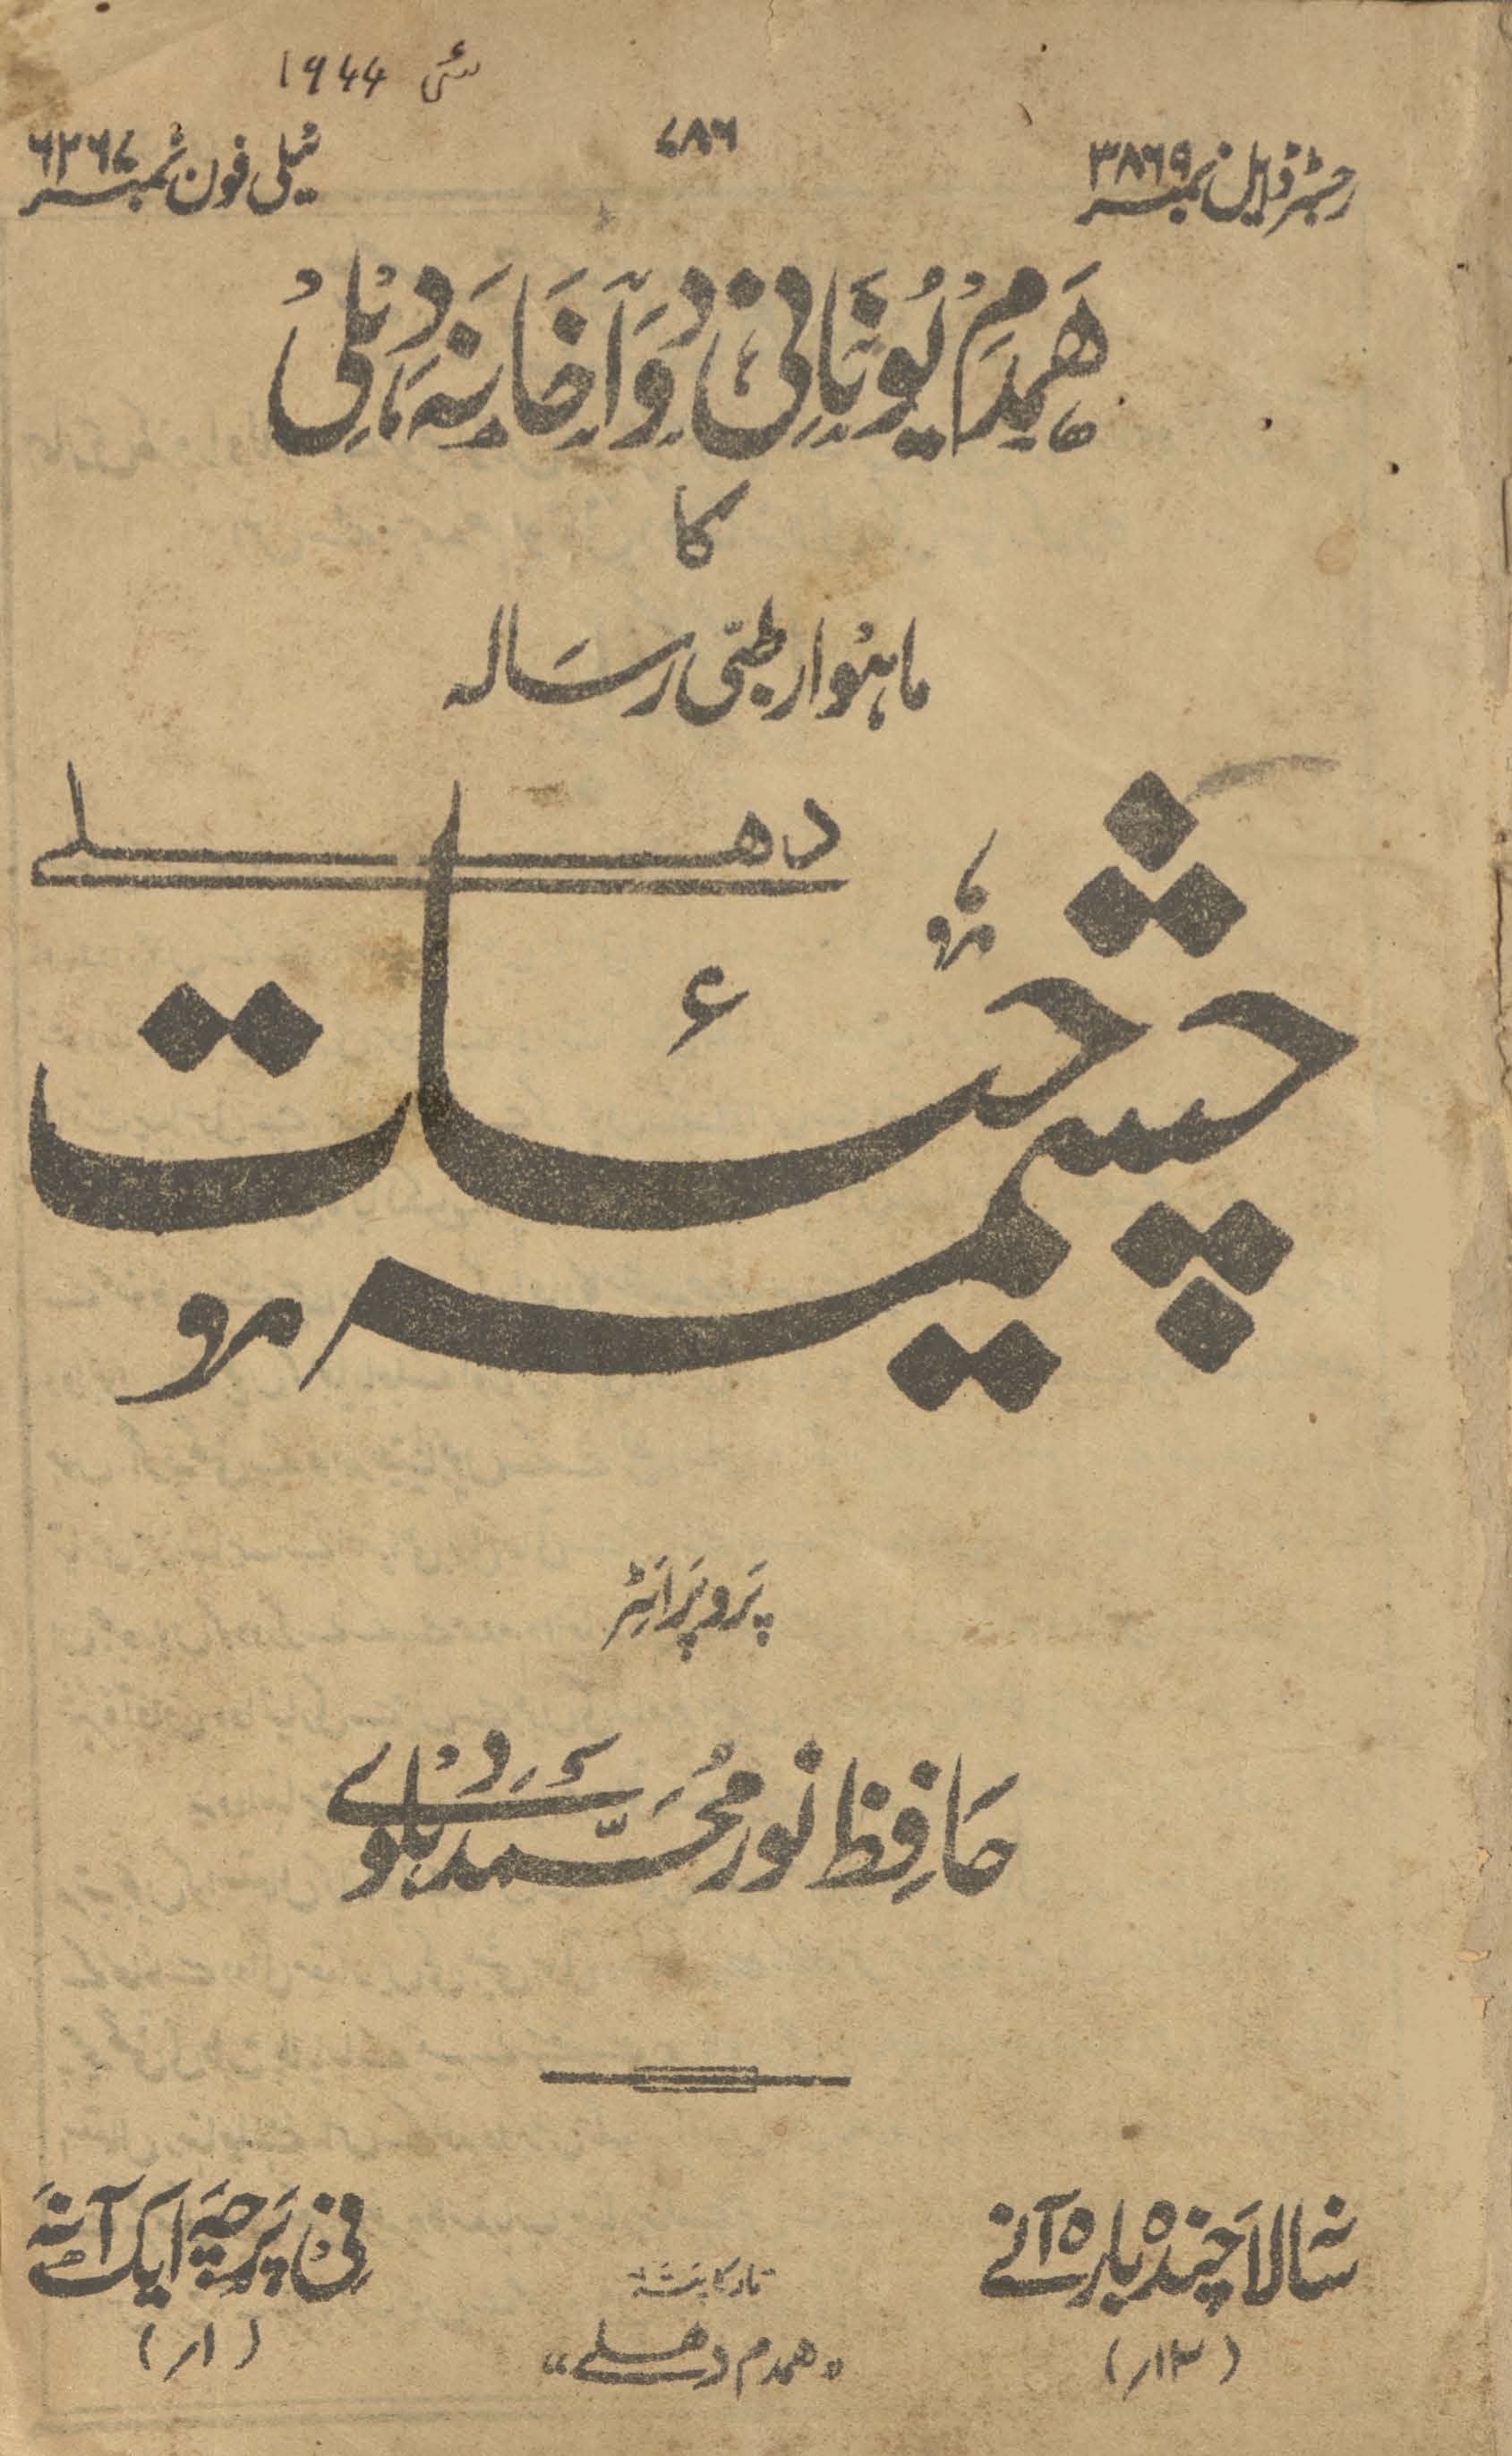 مئی ۱۹۴۴
رجسٹرڈ ایل نمبر ۳۸۶۹
۷۸۶
ٹیلی فون نمبر ۶۲۶۷
ہمدم یونانی دواخانہ دہلی
کا
ماہوار طبّی رسالہ
چشمہ حیات
دھلے
پروپرائٹر
حافظ نور محمّد دہلوی
سالانہ چندہ بارہ آنے
(۱۲؍)
تار کا پتہ
"ھمدم دھلے"
فی پرچہ ایک آنہ
(۱؍)